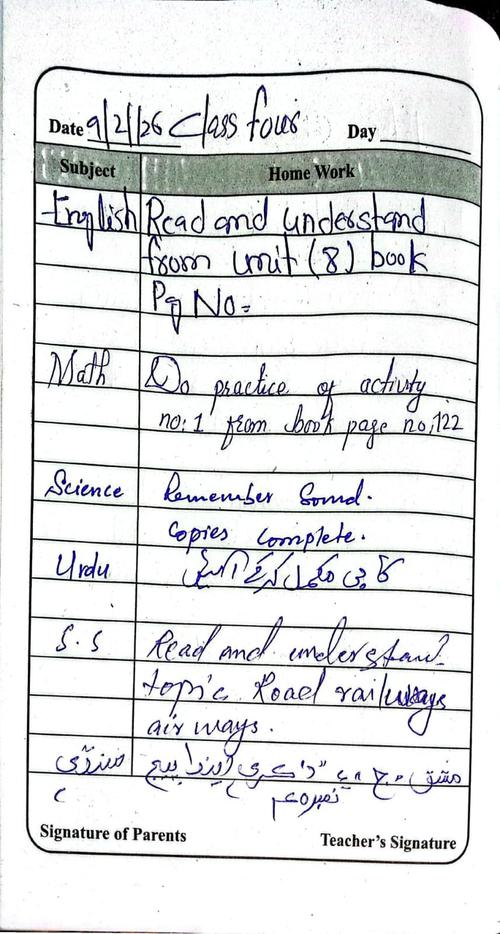 Date 9/2/26 Class four Day
Subject Home Work
English Read and understand
from unit (8) book
Pg No=
Math Do practice of activity
no: 1 from book page no; 122
Science Remember
copies complete.
Urdu کاپی مکمل کرکے آئیں
S.S Read and understand
topic Road railways
airways.
مشق ج
Signature of Parents Teacher's Signature